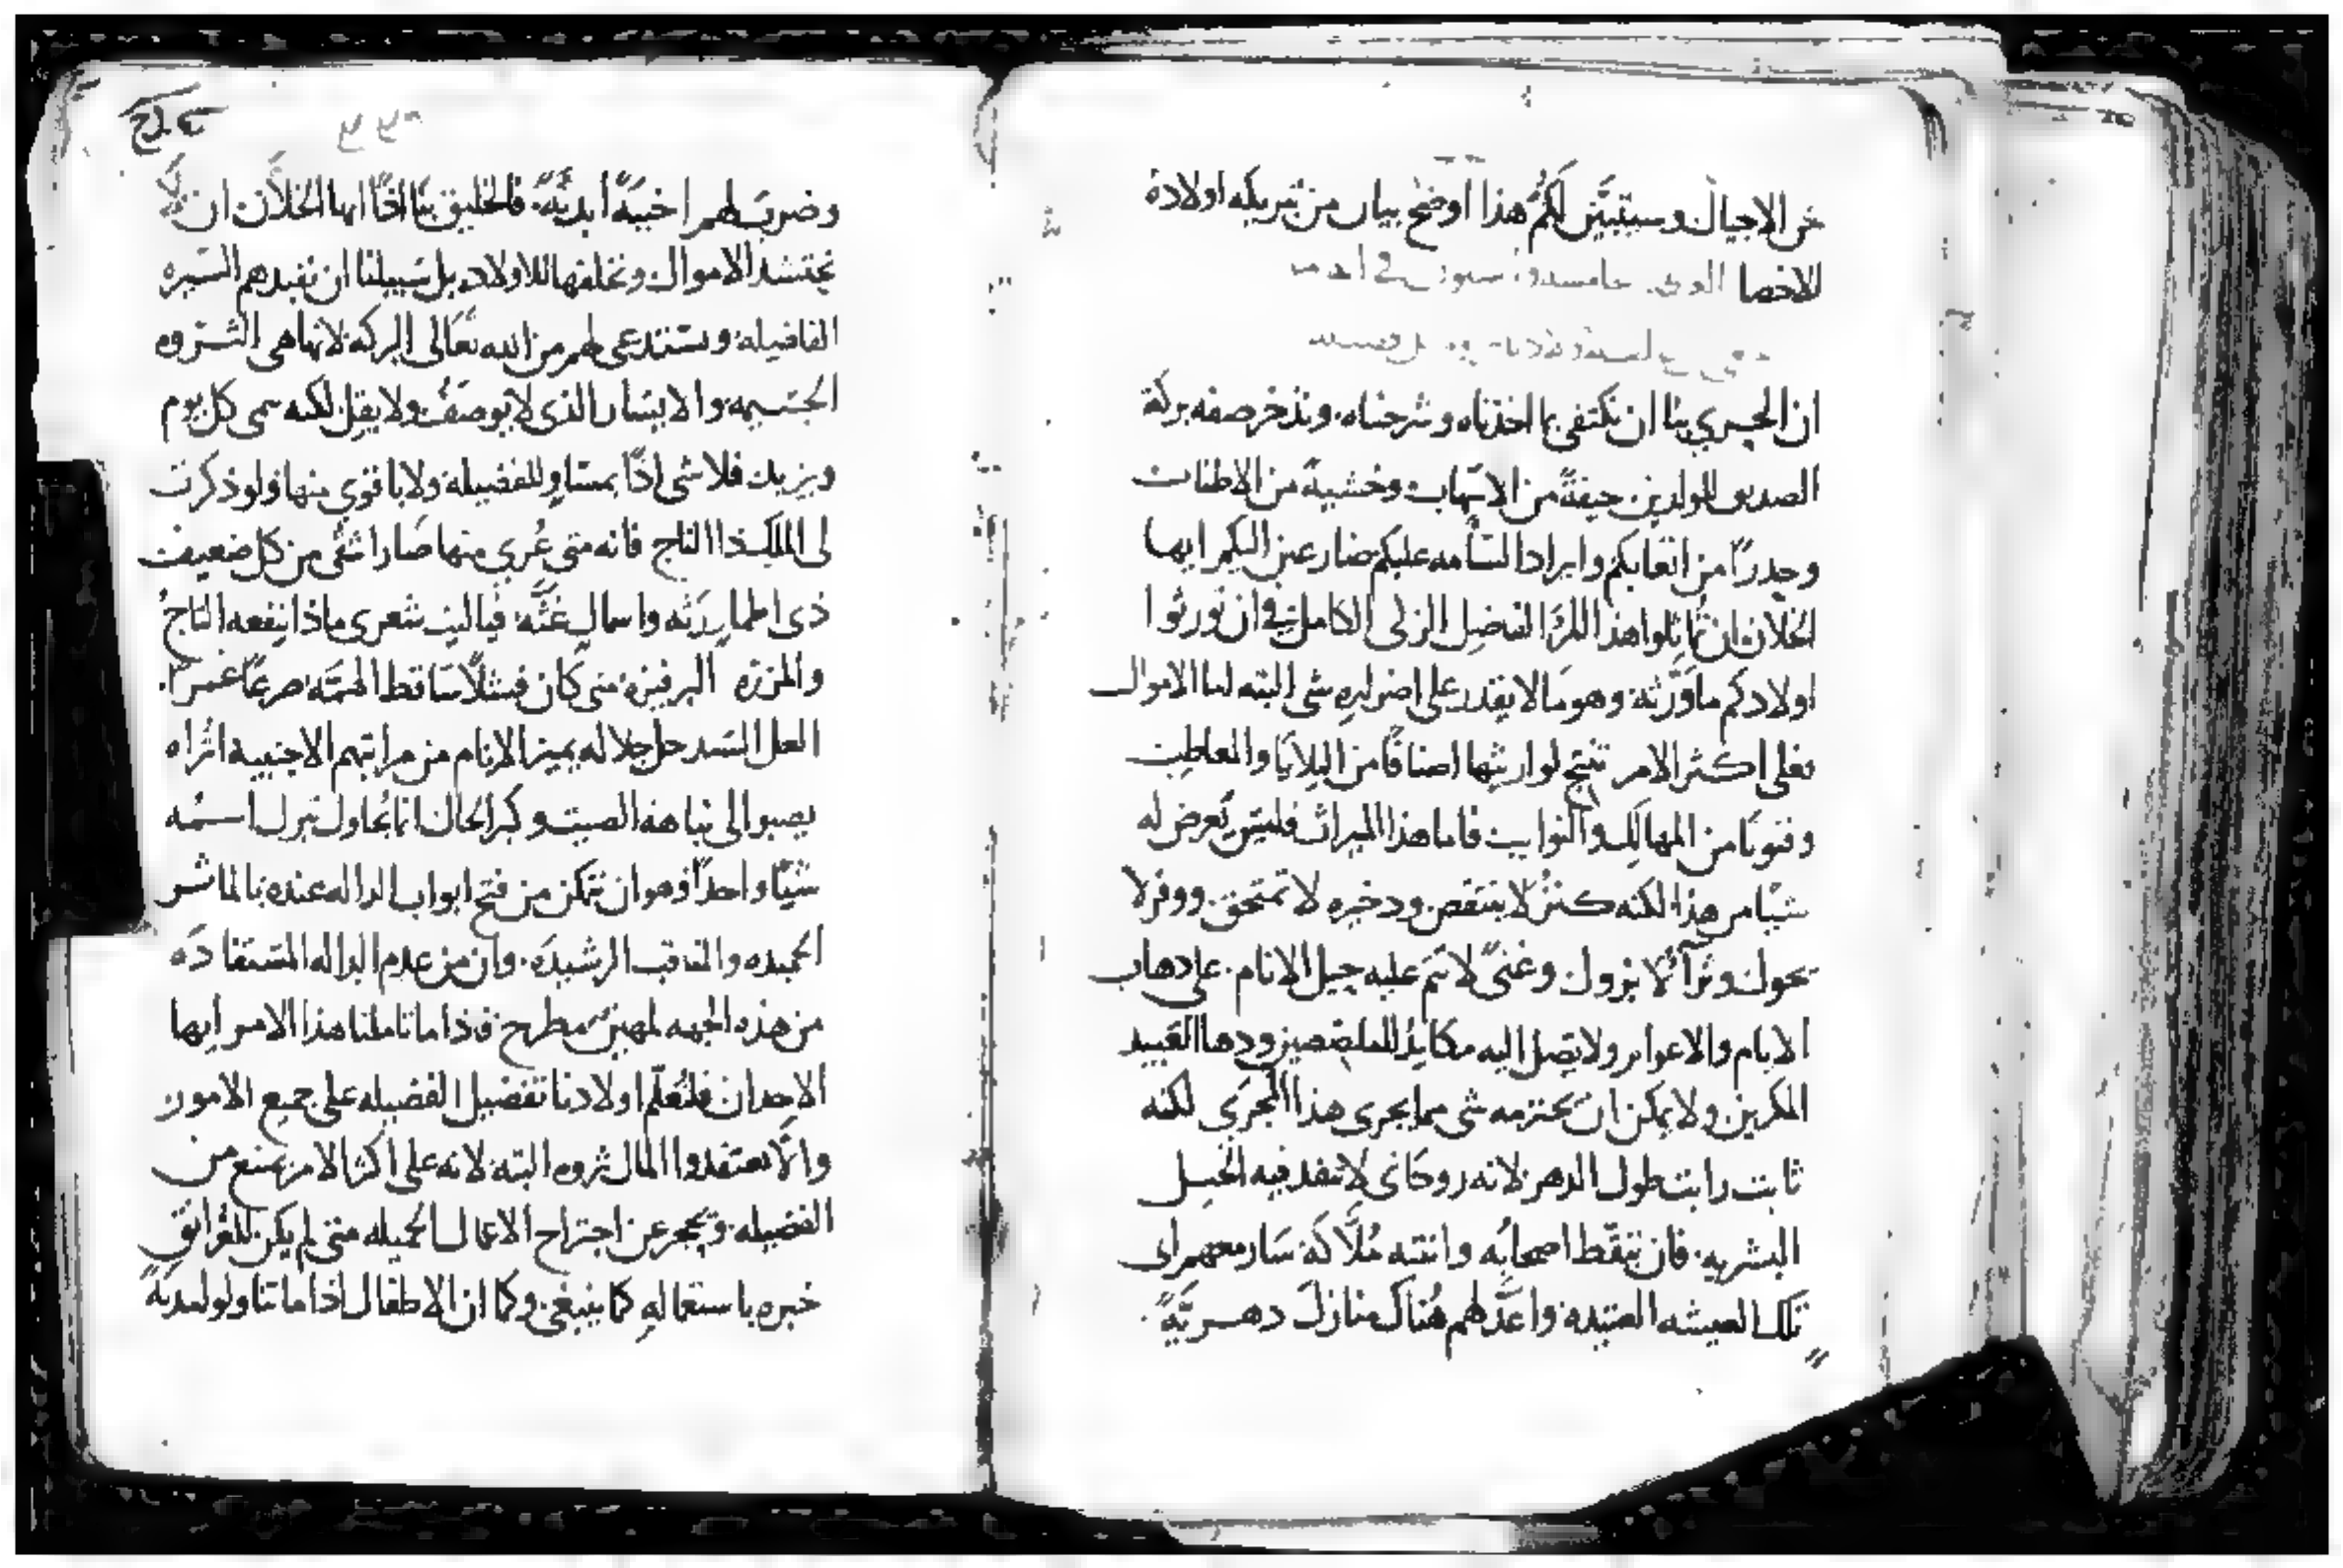 خر الاجيال وسيتبيَّن لكُم هذا اوضح بيان من تبريكه اولاده
للاخصا
ان الحري بنا ان نكتفي بما اخذناه وشرحناه. ونذخر صفه بركة
الصديق للمولدين. خيفةً من الاسهاب وخشيةً من الاطناب
وحدرًا من اتعابكم وايراد السآمه عليكم ضارعين اليكم ايها
الخلان ان تماثلوا هذا الفاضل الزكي الكامل في ان تورثوا
اولادكم ماورَّثه وهو مالا يقدر على اضراره شي البته اما الاموال
فعلى اكثر الامر تنتج لوارثها اصنافًا من البلايا والمعاطب
وفنونًا من المهالك والنوايب فاما هذا الميراث فليس يعرض له
شيًا من هذا لكنه كنزٌ لا ينتقص. ودخيره لا تمتحق. ووفرلا
يحول وثرآ لا يزول وغنىً لا تتم عليه حيل الانام. على دهاب
الايام والاعوام ولا يصل اليه مكايدُ الملصصين ودها العبيد
المكرين. ولا يمكن ان يخترمه شي مما يجرى هذا المجرَى لكنه
ثابت راتب طول الدهر لانه روحَانى لا تنفد فيه الحيل
البشريه. فان تيقّظ اصحابُه وانتبه مُلَّاكهَ سَار معهم الى
تلك العيشه العتيده. واعدَّ لهم هُناك منازلَ دهريَّةً.
وضرب لهم اخبيَةً أبديَّةً. فالخليق بنا اذًا ايها الخلَّان ان
نحتشد الاموال ونخلفها للاولاد. بل سَبيلنا ان نفيدهم السيره
الفاضيله. ونستدعى لهم من الله تعَالى البركه لانها هى الثروه
الجسيمه والايسار الذى لا يوصَف ولا يقل لكنه ينمى كل يوم
ويزيد فلا شى اذًا بمساوٍ للفضيله ولا باقوي منها ولو ذكرت
لى الملك ذا التاج فانه متى عُري منها صَار اشقى من كل ضعيف
ذى اطمارٍ رَثه واسمالٍ غثَّه. فياليت شعرى ماذا ينفعه التاج
والبرفيره متى كان فشلًا سَاقط الهمَّه
العل السَيد جل جلاله يميز الانام من مراتبهم الاجنبيه اتُراه
يصبوا الى نباهة الصيت وكبر الحال انما يُحَاول
شيًا واحدًا وهو ان نتمكن من فتح ابواب الداله عنده بالماثر
الحميده والمناقب الرشيدَه. وان من عدم الداله المستفادَه
من هذه الجهه لمهين مطرح فاذا ما تاملنا هذا الامر ايها
الاخدان فلنُعَلّم اولادنا تفضيل الفضيله على جميع الامور
والَّا يعتقدوا المال ثروه البته. لانه على اكثر الامر يمنع من
الفضيله. ويحجر عن اجتراح الاعمال الحميله متى لم يكن للغرانق
خبره باستعماله كما ينبغي. وكما ان الاطفال اذا ما تناولوا مديةً